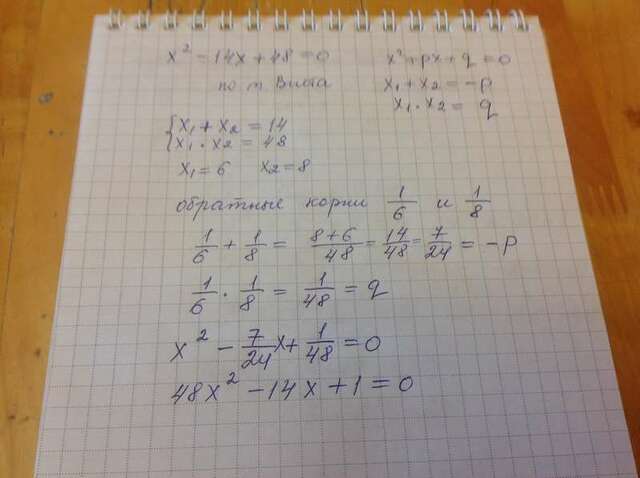 x² = 14x + 48 = 0
x² + px + q = 0
по т. Виета
x₁ + x₂ = -p
x₁ · x₂ = q
{ x₁ + x₂ = 14
x₁ · x₂ = 48
x₁ = 6 x₂ = 8
обратные корни 1/6 и 1/8
1/6 + 1/8 = (8+6)/48 = 14/48 = 7/24 = -p
1/6 · 1/8 = 1/48 = q
x² - 7/24 x + 1/48 = 0
48x² - 14x + 1 = 0